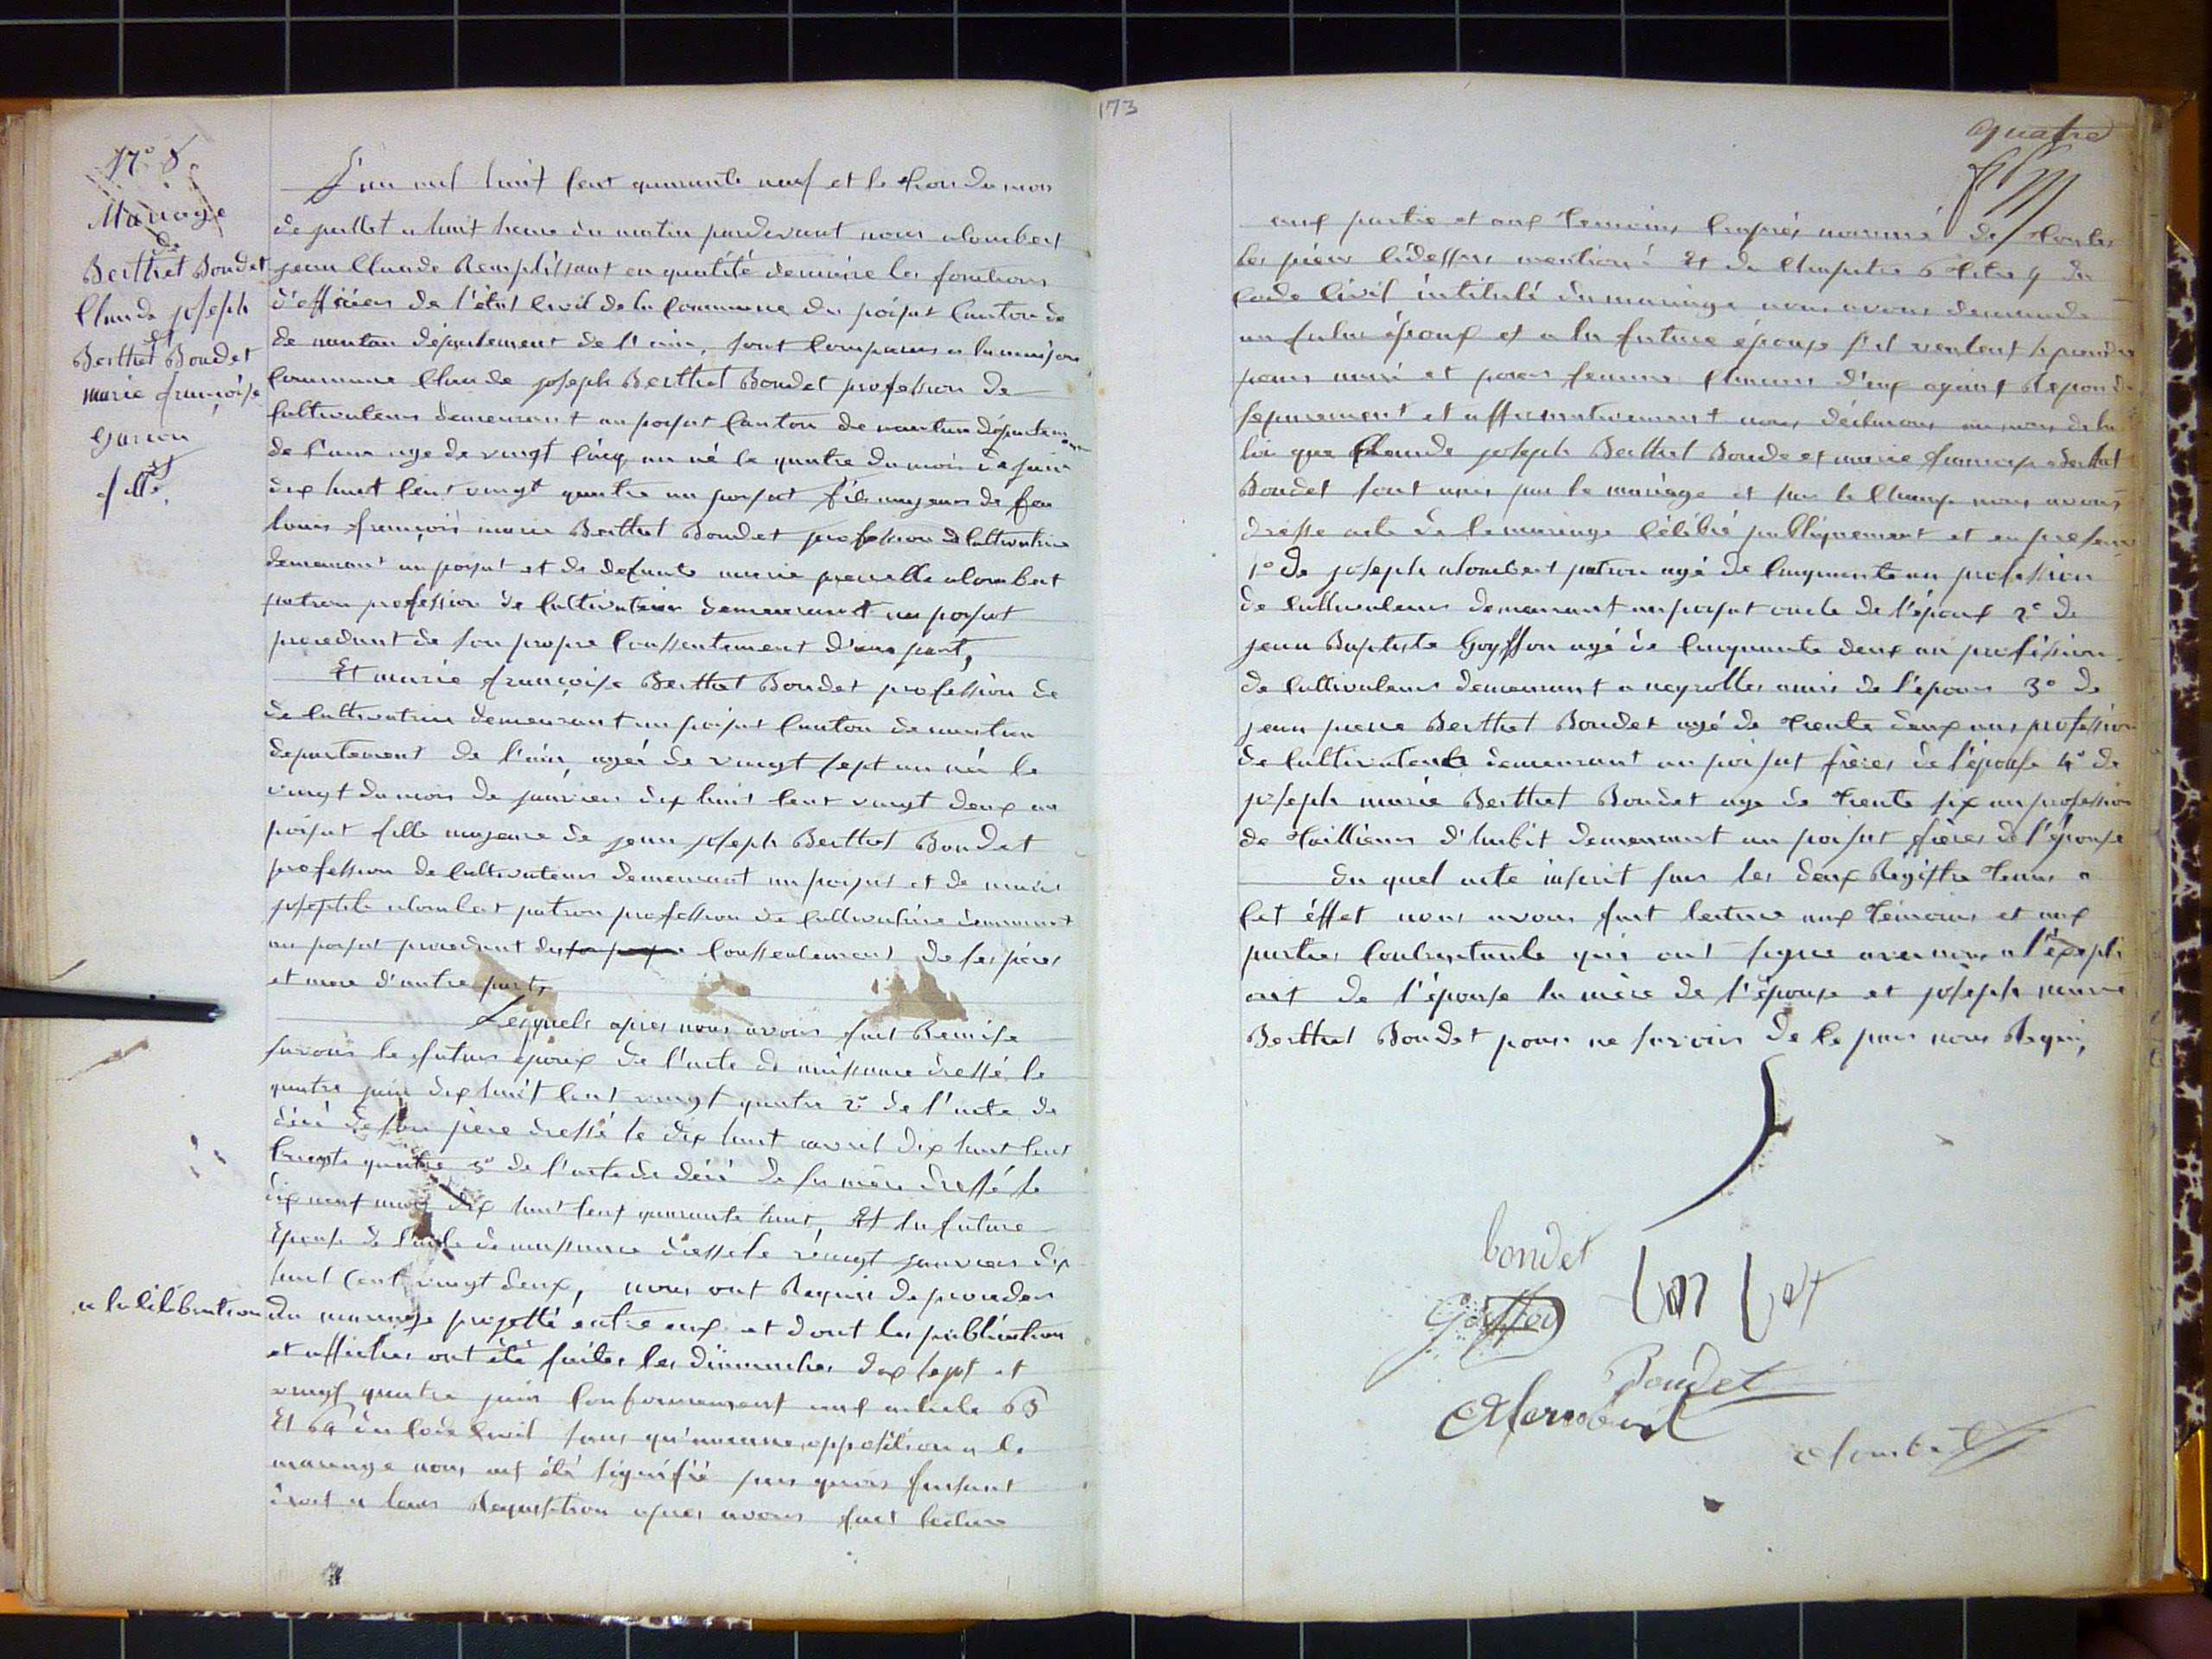 173
N° 8.
Mariage
de
Berthet Bondet
Claude joseph
et
Berthet Bondet
marie françoise
garcon
et
fille.
L'an mil huit cent quarante neuf et le trois du mois
de juillet a huit heure du matin pardevant nous alombert
jean Claude Remplissant en qualité demaire les fonctions
d'officier de l'état civil de la commune du poisat canton de
de nantua département de l'ain, sont comparus a la maison
commune Claude joseph Berthet Bondet profession de
cultivateur demeurant au poisat canton de nantua département
de l'ain age de vingt cinq an né le quatre du mois de juin
dix huit cent vingt quatre au poisat fils majeur de feu
louis françois marie Berthet Bondet profession de cultivatrice
demeurant au poisat et de defunte marie pierrette alombert
patron profession de cultivatrice demeurant au poisat
procedant de son propre conssentement d'une part,
Et marie françoise Berthet Bondet profession de
de cultivatrice demeurant au poisat canton de nantua
departement de l'ain, agée de vingt sept an née le
vingt du mois de janvier dix huit cent vingt deux au
poisat fille majeure de jean joseph Berthet Bondet
profession de cultivateur demeurant au poisat et de marie
josephte alombert patron profession de cultivatrice demeurant
au poisat procedant du conssentement de ses père
et mere d'autre part,
Lesquels apres nous avoir fait Remise
savoir le futur époux de l'acte de naissance dressé le
quatre juin dix huit cent vingt quatre 2° de l'acte de
décé de son père dressé le dix huit avril dix huit cent
trente quatre 3° de l'acte de décé de sa mère dressé le
dix neuf mars dix huit cent quarante huit, Et la future
Epouse de l'acte de naissance dressé le vingt janvier dix
huit cent vingt deux, nous ont Requis de proceder
a la célébration du mariage projetté entre eux et dont les publication
et affiches ont été faites les dimanches dix sept et
vingt quatre juin conformement aux article 63
Et 64 du code civil sans qu'aucune opposition a le
mariage nous ait été signifié par quoi faisant
droit a leur Requisition apres avoir fait lecture
quatre
aux partie et aux temoins cyaprès nommé de toutes
les pièce cidessus mentioné Et du Chapitre 6 titre 5 du
code civil intitulé du mariage nous avons demande
au futur époux et a la future épouse s'il veulent se prendre
pour mari et pour femme chacun d'eux ayant Repondu
séparement et affirmativement nous déclarons au nom de la
loi que Claude joseph Berthet Bondet et marie françoise Berthet
Bondet sont unis par le mariage et sur le Champ nous avons
dresse acte de le mariage célébré publiquement et en presence
1° De joseph alombert patron agé de cinquante an profession
de cultivateur demeurant au poisat oncle de l'époux 2° de
jean Baptiste Goyffon agé de cinquante deux an profission
de cultivateur demeurant a neyrolles amis de l'époux 3° de
jean pierre Berthet Bondet agé de trente deux ans profession
de cultivateur demeurant au poisat frères de l'épouse 4° de
joseph marie Berthet Bondet age de trente six an profession
de taillieur d'habit demeurant au poisat frères de l'épouse
du quel acte inscrit sur les deux Régistre tenus a
cet éffet nous avons fait lecture aux témoins et aux
parties contractante qui ont signe avec nous a l'éxepti
ont de l'épouse la mère de l'épouse et joseph marie
Berthet Bondet pour ne savoir de le par nous Requi,
bondet
Goyffon
Bondet
Alombert
alombert